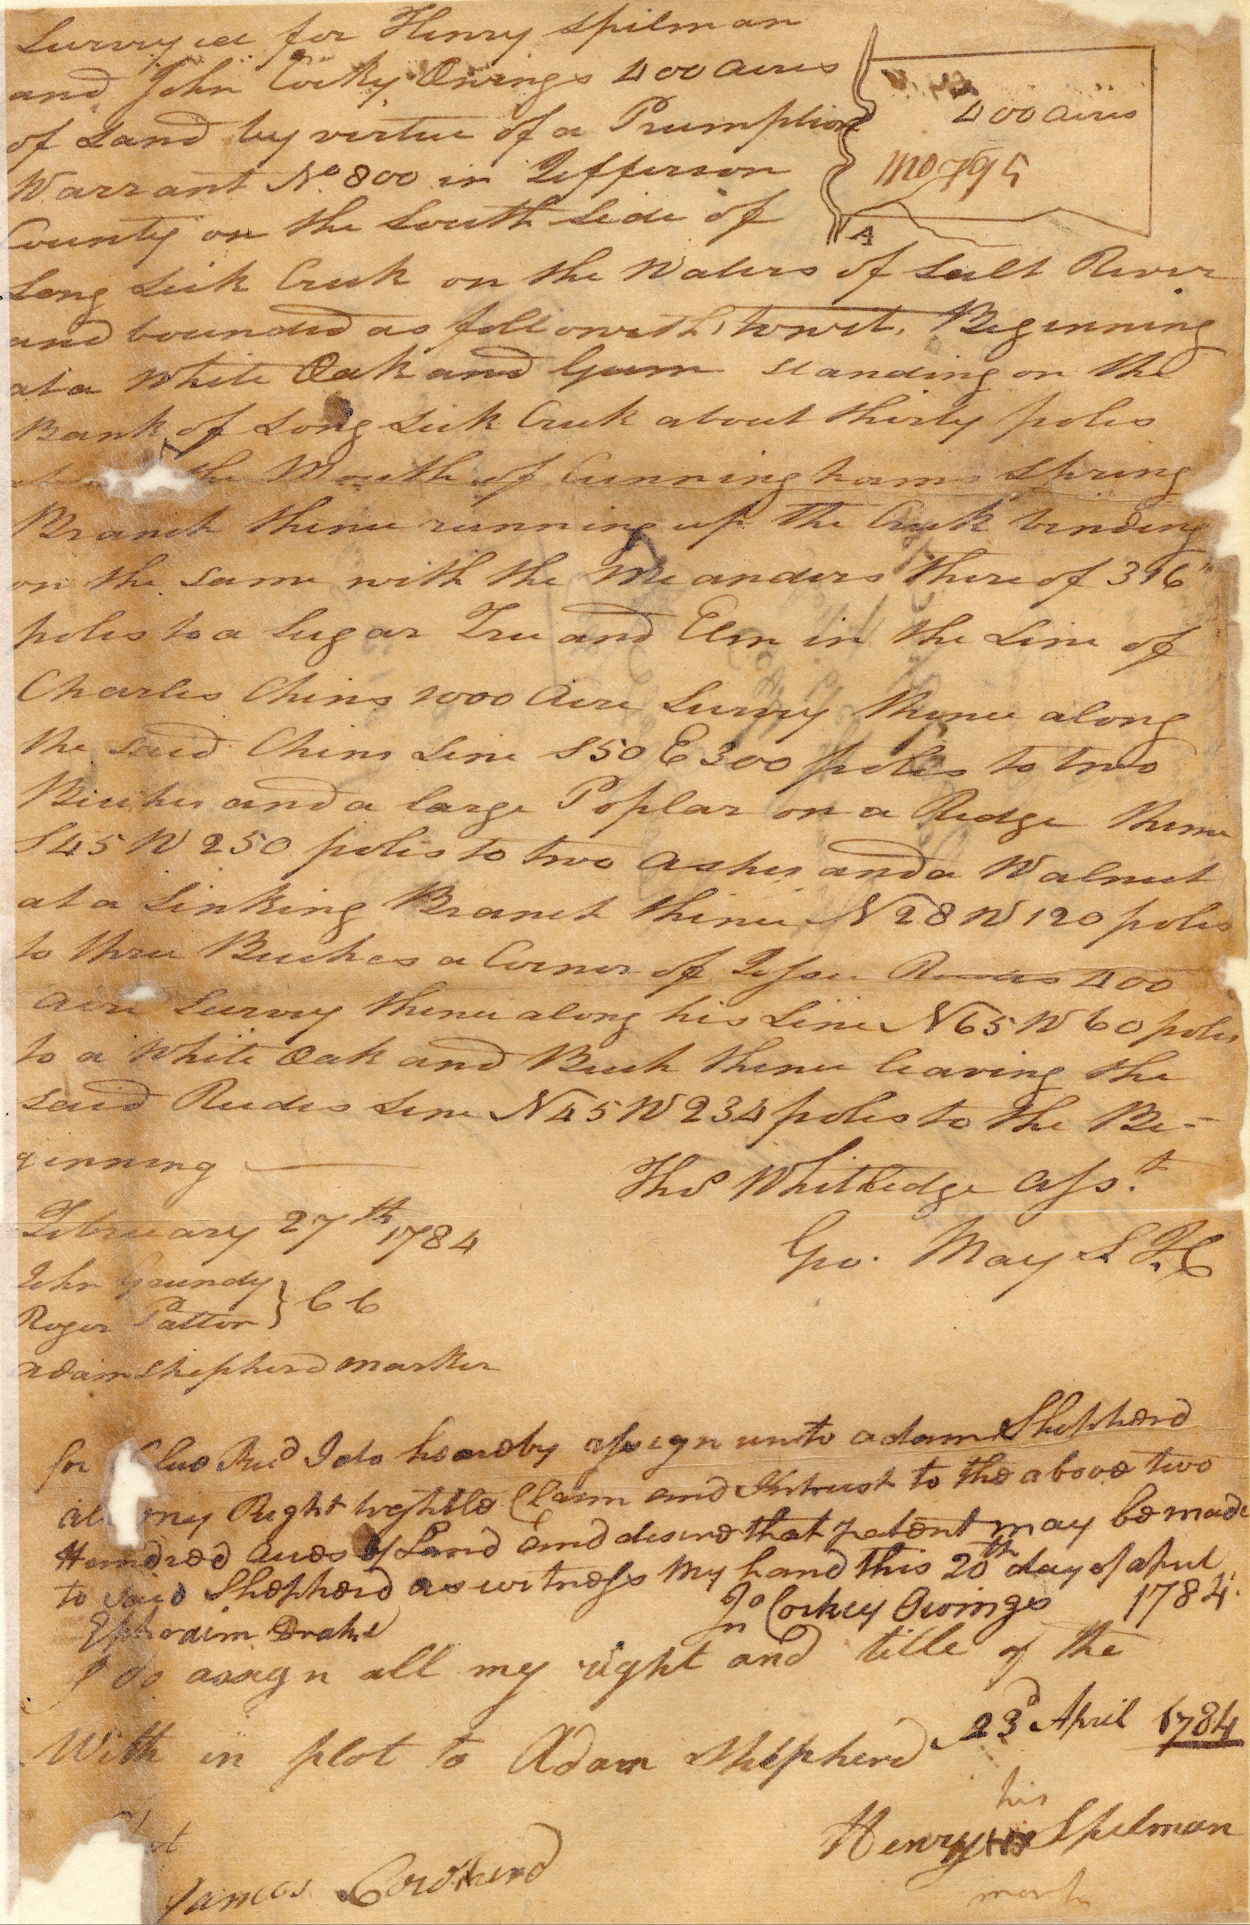 Surveyed for Henry Spilman
and John Cocky Owings 400 acres
400 acres
of Land by virtue of a Preemption
Warrant No 800 in Jefferson
A
County on the South Side of
Long Lick Creek on the Waters of Salt River
and bounded as followeth, towit. Beginning
at a White Oak and Gum standing on the
Bank of Long Lick Creek about thirty poles
the Mouth of Cunninghams Spring
Branch thence running up the Creek binding
on the same with the Meanders thereof 316
poles to a Sugar Tree and Elm in the Line of
Charles Chins 1000 Acre Survey thence along
the said Chins Line S50E 300 poles to two
Beeches and a large Poplar on a Ridge thence
S45W 250 poles to two ashes and a Walnut
at a Sinking Branch thence N28W 120 poles
to three Beeches a Corner of Jesse Rudes 400
acre Survey thence along his Line N65W 60 poles
to a White Oak and Beech thence leaving the
said Rudes Line N45W 234 poles to the Be-
ginning
Thos Whitledge Asst.
February 27th 1784
Geo. May S J C
John Grundy
Roger Patton } C C
Adam Shepherd marker
for Recd I do heareby assign unto adam Shepherd
all my Right tytle Claim and Intrust to the above two
Hundred acres of Land and desire that patent may be made
to said Shepherd as witness my hand this 20th day of april
Jno Cockey Owings 1784.
Ephraim Drake
I do assign all my right and title of the
With in plot to Adam Shepherd 23d April 1784
his
Henry Spelman
mark
James